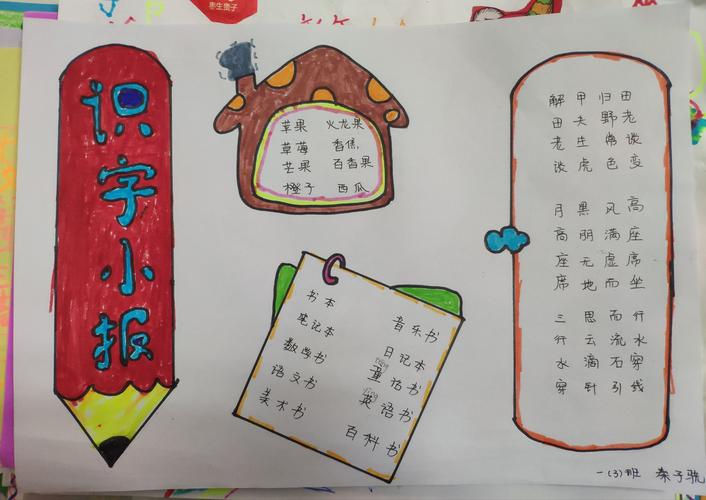 恵生贵子
识字小报
苹果 火龙果
草莓 香焦
芒果 百香果
橙子 西瓜
书本
笔记本
数学书
语文书
美术书
音乐书
日记本
tóng
童话书
yīng
英语书
百科书
解甲归田
田夫野老
老生常谈
谈虎色变
月黑风高
高朋满座
座无虚席
席地而坐
三思而行
行云流水
水滴石穿
穿针引线
一(3)班